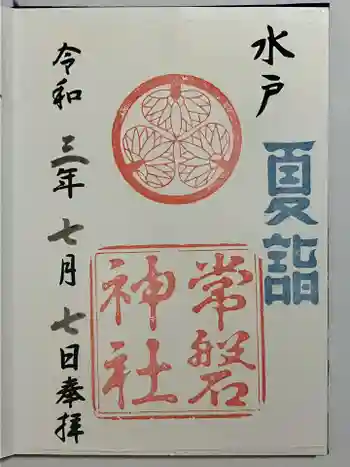 水戸
夏詣
常磐
神社
令和三年七月七日奉拝